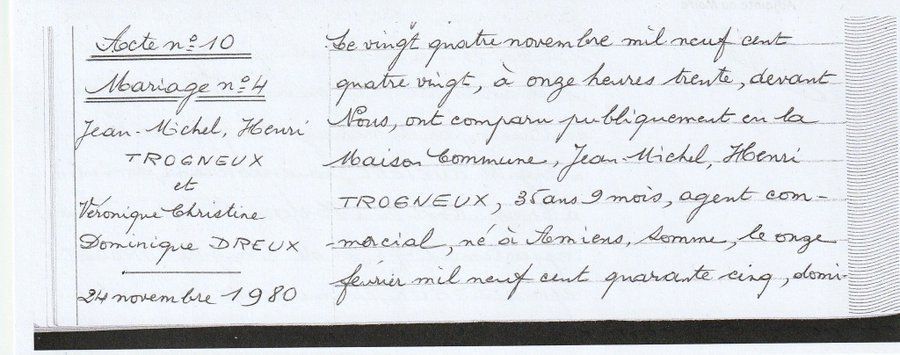 Acte n° 10
Mariage n° 4
Jean-Michel, Henri
TROGNEUX
et
Véronique Christine
Dominique DREUX
24 novembre 1980
Le vingt quatre novembre mil neuf cent
quatre vingt, à onze heures trente, devant
Nous, ont comparu publiquement en la
Maison Commune, Jean-Michel, Henri
TROGNEUX, 35 ans 9 mois, agent com-
-mercial, né à Amiens, Somme, le onze
février mil neuf cent quarante cinq, domi-